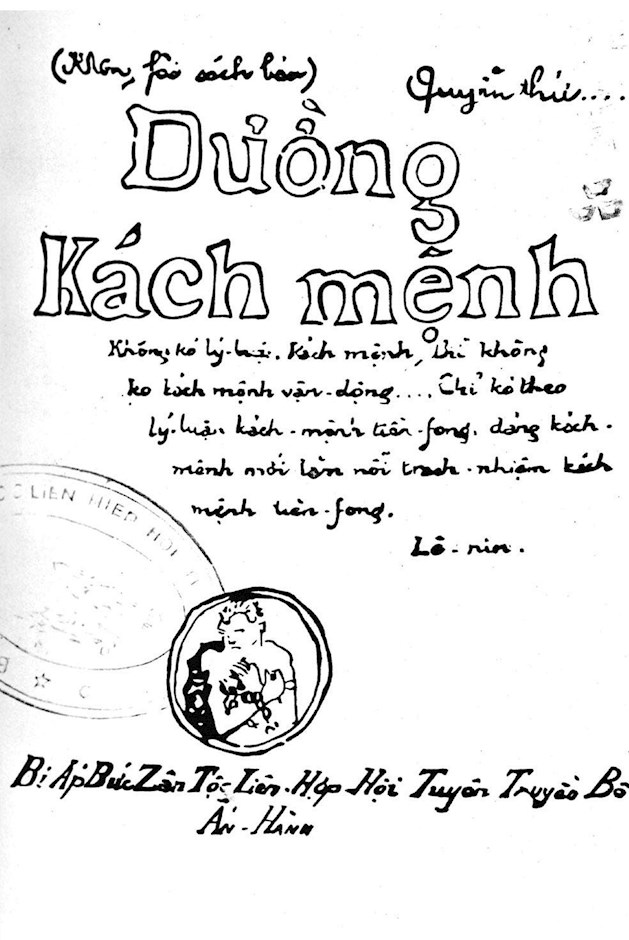 sách
Quyển thứ....
Đường
Kách mệnh
Không kó lý-luận kách mệnh, thì không
kó kách mệnh vận-động.... Chỉ kó theo
lý-luận kách-mệnh tiền-fong, đảng kách-
mệnh mới làm nổi trách-nhiệm kách
mệnh tiền-fong.
Lê-nin.
LIEN HIEP HOI
Bị Áp Bức Zân Tộc Liên-Hợp Hội Tuyên Truyền Bộ
Ấn-Hành